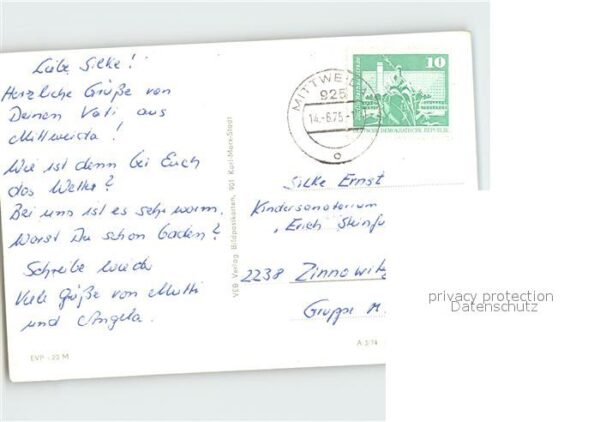 Liebe Silke!
Herzliche Grüße von
Deinem Vati aus
Mittweida!
Wie ist denn bei Euch
das Wetter?
Bei uns ist es sehr warm.
Warst Du schon baden?
Schreibe wieder
Viele Grüße von Mutti
und Angela.
EVP -,20 M
VEB Verlag Bildpostkarten, 901 Karl-Marx-Stadt
A 3/74
MITTWEI
925
14.-8.75-
10
DEUTSCHE DEMOKRATISCHE REPUBLIK
Silke Ernst
Kindersanatorium
"Erich Steinfu
2238 Zinnowitz
Gruppe M.
privacy protection
Datenschutz